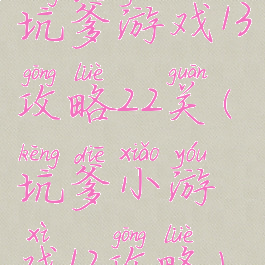 坑爹游戏13
gōng lüè guān
攻略22关(
kēng diē xiǎo yóu
坑爹小游
xì gōng lüè